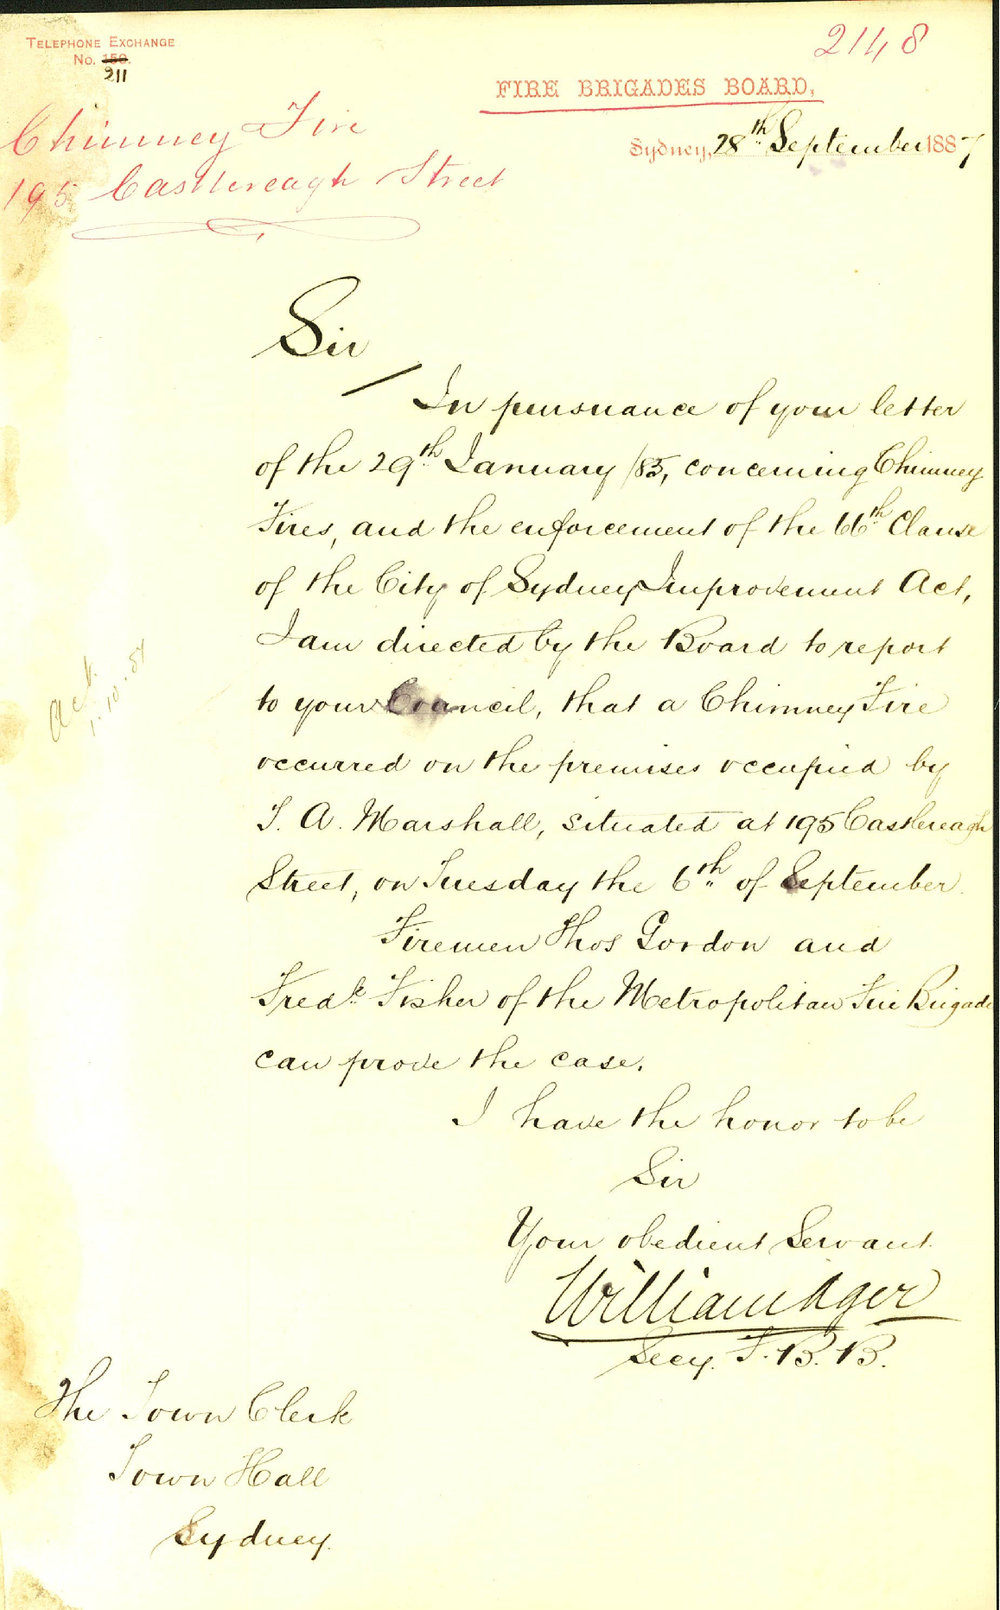 2148
TELEPHONE EXCHANGE
No. 150.
211
FIRE BRIGADES BOARD,
Sydney, 28th September 1887
Chimney Fire
195 Castlereagh Street
Sir
In pursuance of your letter
of the 29th January /85, concerning Chimney
Fires, and the enforcement of the 66th Clause
of the City of Sydney Improvement Act,
I am directed by the Board to report
to your Council, that a Chimney Fire
occurred on the premises occupied by
T. A. Marshall, situated at 195 Castlereagh
Street, on Tuesday the 6th of September.
Firemen Thos Gordon and
Fredk Fisher of the Metropolitan Fire Brigade
can prove the case.
I have the honor to be
Sir
Your obedient Servant
William Ager
Secy. F. B. B.
The Town Clerk
Town Hall
Sydney.